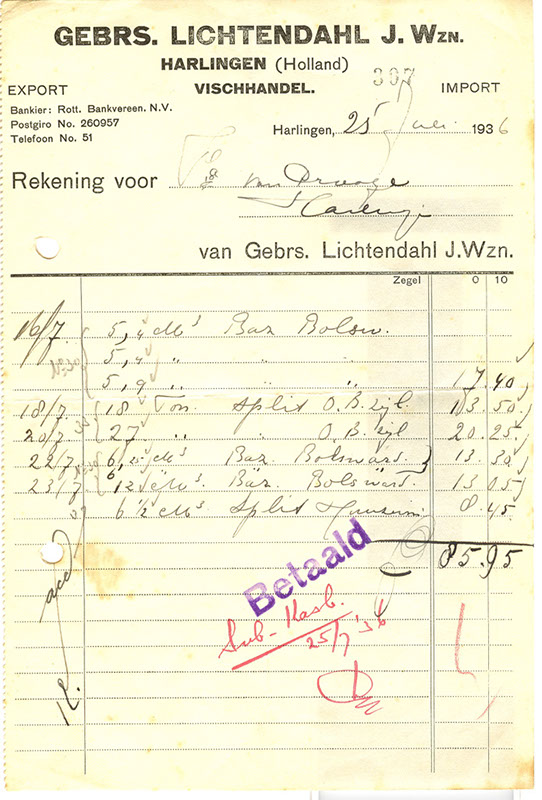 GEBRS. LICHTENDAHL J. WZN.
HARLINGEN (Holland)
397
EXPORT VISCHHANDEL. IMPORT
Bankier: Rott. Bankvereen. N.V.
Postgiro No. 260957
Telefoon No. 51
Harlingen, 25 Juli 1936
Rekening voor van
van Gebrs. Lichtendahl J.Wzn.
Zegel 0 10
16/7 5, M³ Baz Bolsw.
5,4 " " "
5,9 " " " 17.40
18/7 18 Ton. Split O.B.zijl. 13.50
20/7 27 " " O.B.zijl 20.25
22/7 6, M³ Baz. Bolsward. 13.30
23/7 M³ Baz. Bolsward. 13.05
6 1/2 M³ Split 8.45
85.95
acc
Betaald
Sub-Kasb.
25/7 '36
K.